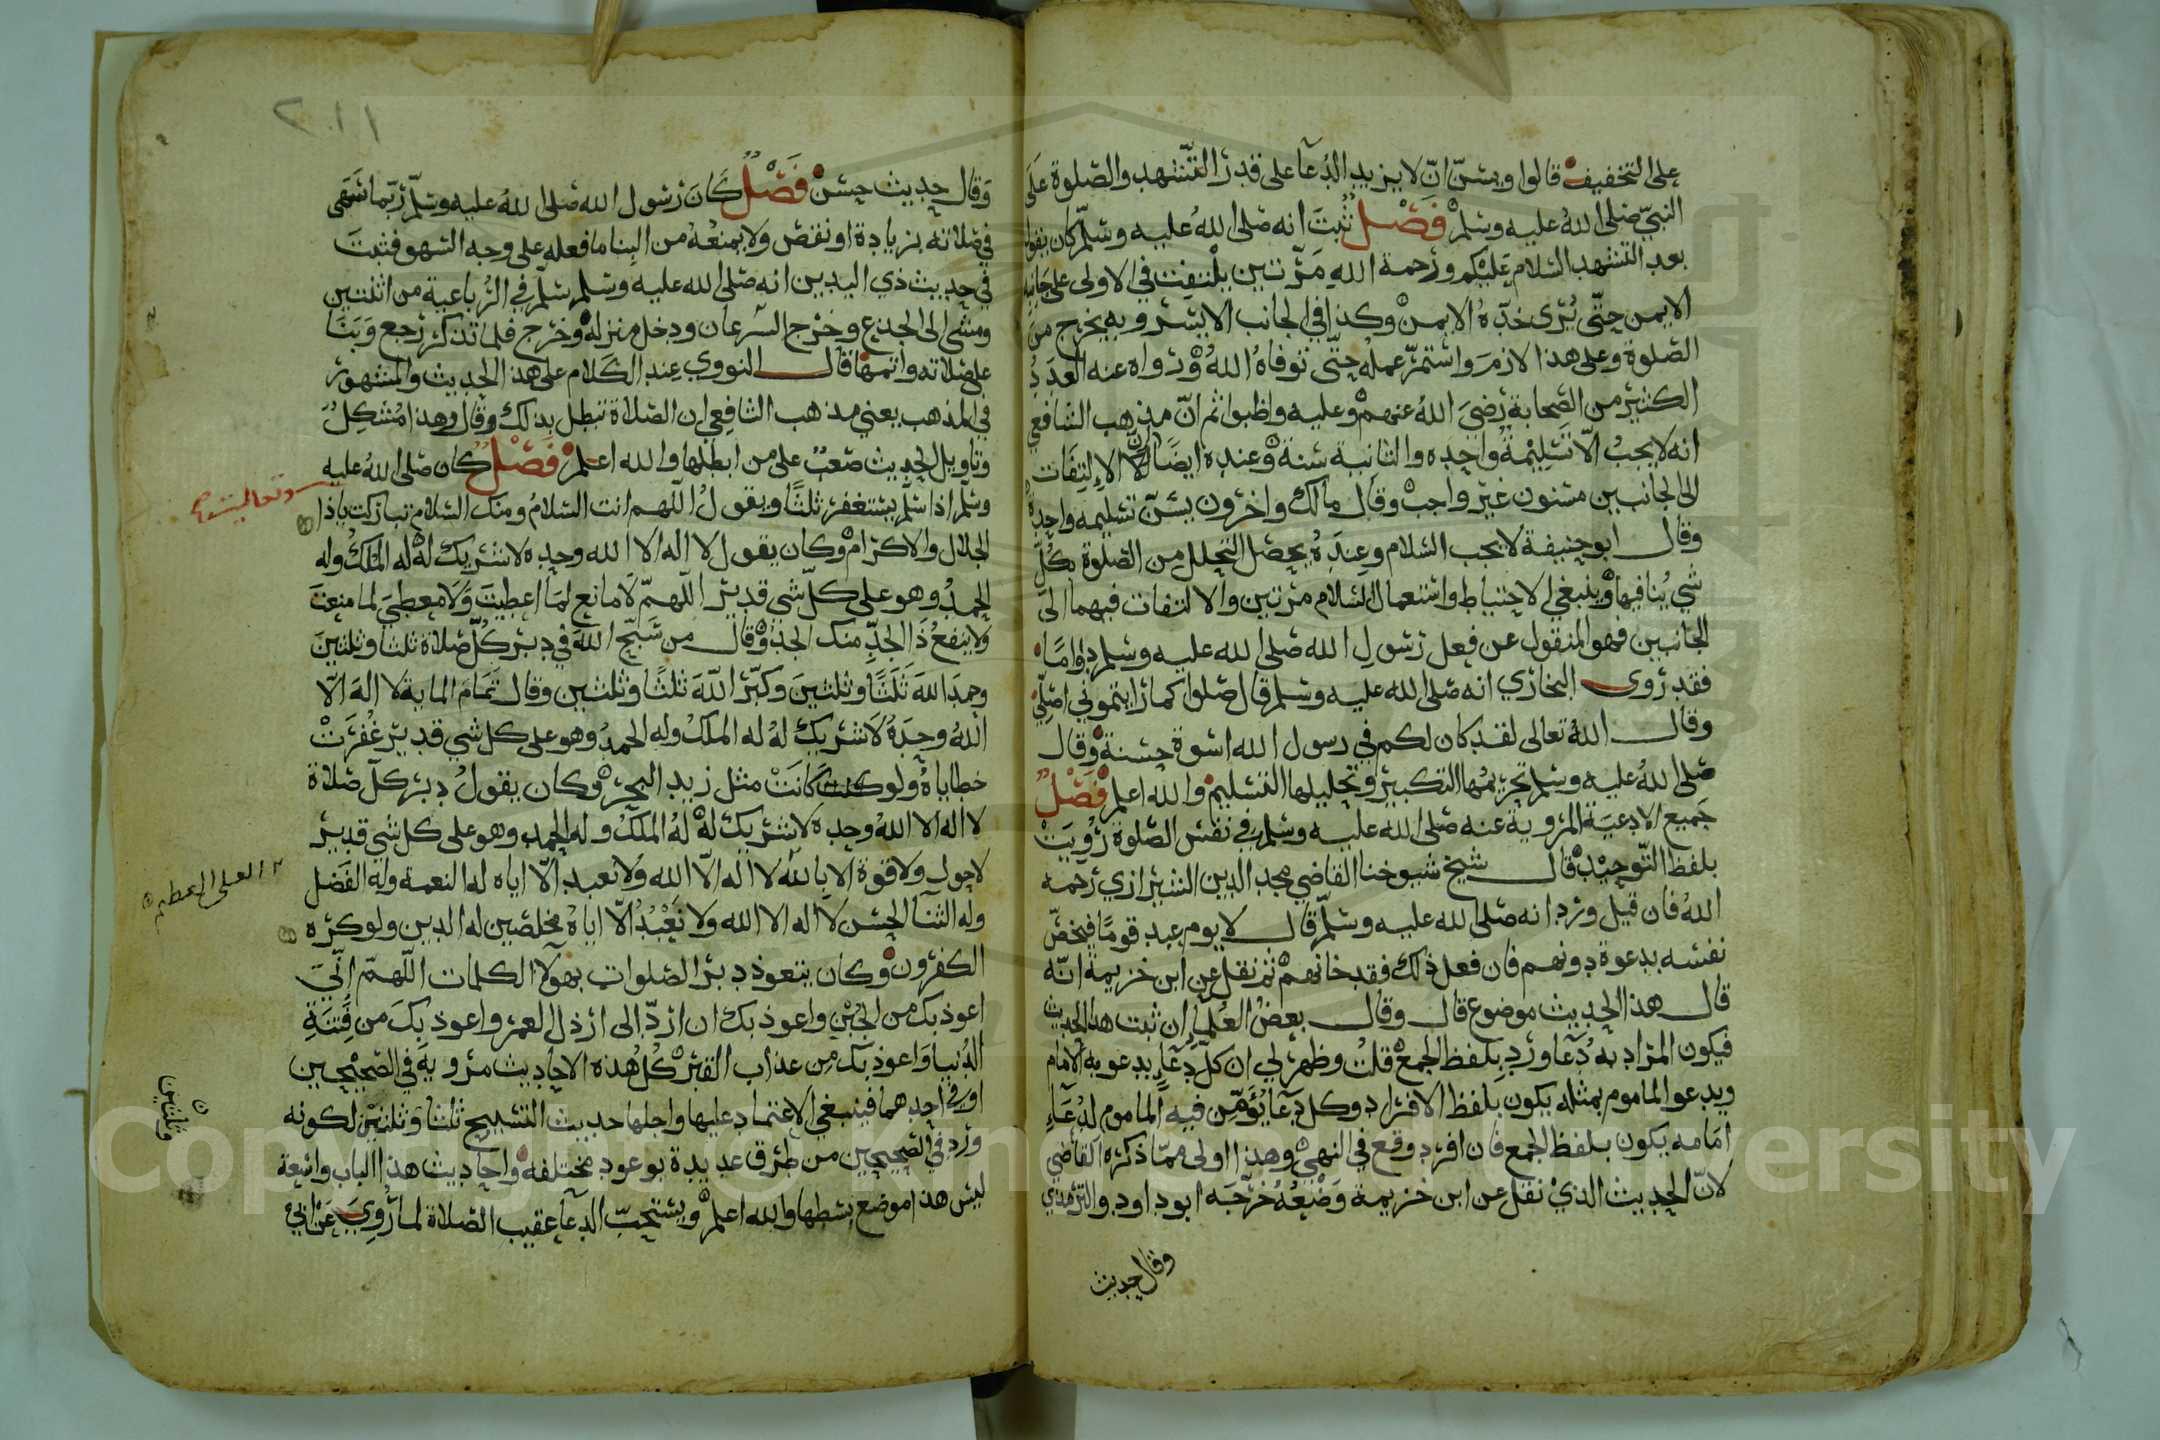 على التخفيف قالوا ويسن ان لا يزيد الدعا على قدر التشهد والصلوة على
النبي صلى الله عليه وسلم فصل ثبت انه صلى الله عليه وسلم كان يقول
بعد التشهد السلام عليكم ورحمة الله مرتين يلتفت في الاولى على جانبه
الايمن حتى يرى خده الايمن وكذا في الجانب الايسر وبه يخرج من
الصلوة وعلى هذا لازم واستمر عمله حتى توفاه الله ورواه عنه العدد
الكثير من الصحابة رضي الله عنهم وعليه واظبوا ثم ان مذهب الشافعي
انه لا يجب الا تسليمة واحده والثانية سنة وعنده ايضا ان الالتفات
الى الجانبين مسنون غير واجب وقال مالك واخرون يسن تسليمه واحدة
وقال ابو حنيفة لا يجب السلام وعنده يحصل التحلل من الصلوة بكل
شي ينافيها وينبغي الاحتياط واستعمال السلام مرتين والالتفات فيهما الى
الجانبين فهو المنقول عن فعل رسول الله صلى الله عليه وسلم دواما
فقد روى البخاري انه صلى الله عليه وسلم قال صلوا كما رايتموني اصلي
وقال الله تعالى لقد كان لكم في رسول الله اسوة حسنة وقال
صلى الله عليه وسلم تحريمها التكبير وتحليلها التسليم والله اعلم فصل
جميع الادعية المروية عنه صلى الله عليه وسلم في نفس الصلوة رويت
بلفظ التوحيد قال شيخ شيوخنا القاضي مجد الدين الشيرازي رحمه
الله فان قيل ورد انه صلى الله عليه وسلم قال لا يوم عبد قوما فيخص
نفسه بدعوة دونهم فان فعل ذلك فقد خانهم ثم نقل عن ابن خزيمة انه
قال هذا الحديث موضوع قال وقال بعض العلما ان ثبت هذا الحديث
فيكون المراد به دعا ورد بلفظ الجمع قلت وظهر لي ان كل دعاء يدعو به الامام
ويدعو الماموم بمثله يكون بلفظ الافراد وكل دعا يؤمن فيه الماموم لدعاء
امامه يكون بلفظ الجمع فان افرد وقع في النهي وهذا اولى مما ذكره القاضي
لان الحديث الذي نقل عن ابن خزيمة وضعه خرجه ابو داود والترمذي
وقال حديث
٢٠١١
وقال حديث حسن فصل كان رسول الله صلى الله عليه وسلم ربما سهى
في صلاته بزيادة او نقص ولا يمنعه من البنا ما فعله على وجه السهو فثبت
في حديث ذي اليدين انه صلى الله عليه وسلم سلم في الرباعية من اثنتين
ومشى الى الجذع وخرج السرعان ودخل منزله وخرج فلما تذكر رجع وبنا
على صلاته واتمها قال النووي عند الكلام على هذا الحديث والمشهور
في المذهب يعني مذهب الشافعي ان الصلاة تبطل بذلك وقال وهذا مشكل
وتاويل الحديث صعب على من ابطلها والله اعلم فصل كان صلى الله عليه
وسلم اذا سلم يستغفر ثلثا ويقول اللهم انت السلام ومنك السلام تباركت ياذا
الجلال والاكرام وكان يقول لا اله الا الله وحده لا شريك له له الملك وله
الحمد وهو على كل شي قدير اللهم لا مانع لما اعطيت ولا معطي لما منعت
ولا ينفع ذا الجد منك الجد وقال من سبح الله في دبر كل صلاة ثلثا وثلثين
وحمد الله ثلثا وثلثين وكبر الله ثلثا وثلثين وقال تمام الماية لا اله الا
الله وحده لا شريك له له الملك وله الحمد وهو على كل شي قدير غفرت
خطاياه ولو كانت مثل زبد البحر وكان يقول دبر كل صلاة
لا اله الا الله وحده لا شريك له له الملك وله الحمد وهو على كل شي قدير
لا حول ولا قوة الا بالله لا اله الا الله ولا نعبد الا اياه له النعمة وله الفضل
العلي العظيم
وله الثنا الحسن لا اله الا الله ولا نعبد الا اياه مخلصين له الدين ولو كره
الكفرون وكان يتعوذ دبر الصلوات بهولا الكلمات اللهم اني
اعوذ بك من الجبن واعوذ بك ان ارد الى ارذل العمر واعوذ بك من فتنة
الدنيا واعوذ بك من عذاب القبر كل هذه الاحاديث مروية في الصحيحين
او في احدهما فينبغي الاعتماد عليها واجلها حديث التسبيح ثلثا وثلثين لكونه
وثلثين
ورد في الصحيحين من طرق عديدة بوعود مختلفه واحاديث هذا الباب واسعة
ليس هذا موضع بسطها والله اعلم ويستحب الدعا عقيب الصلاة لما روي عن ابي